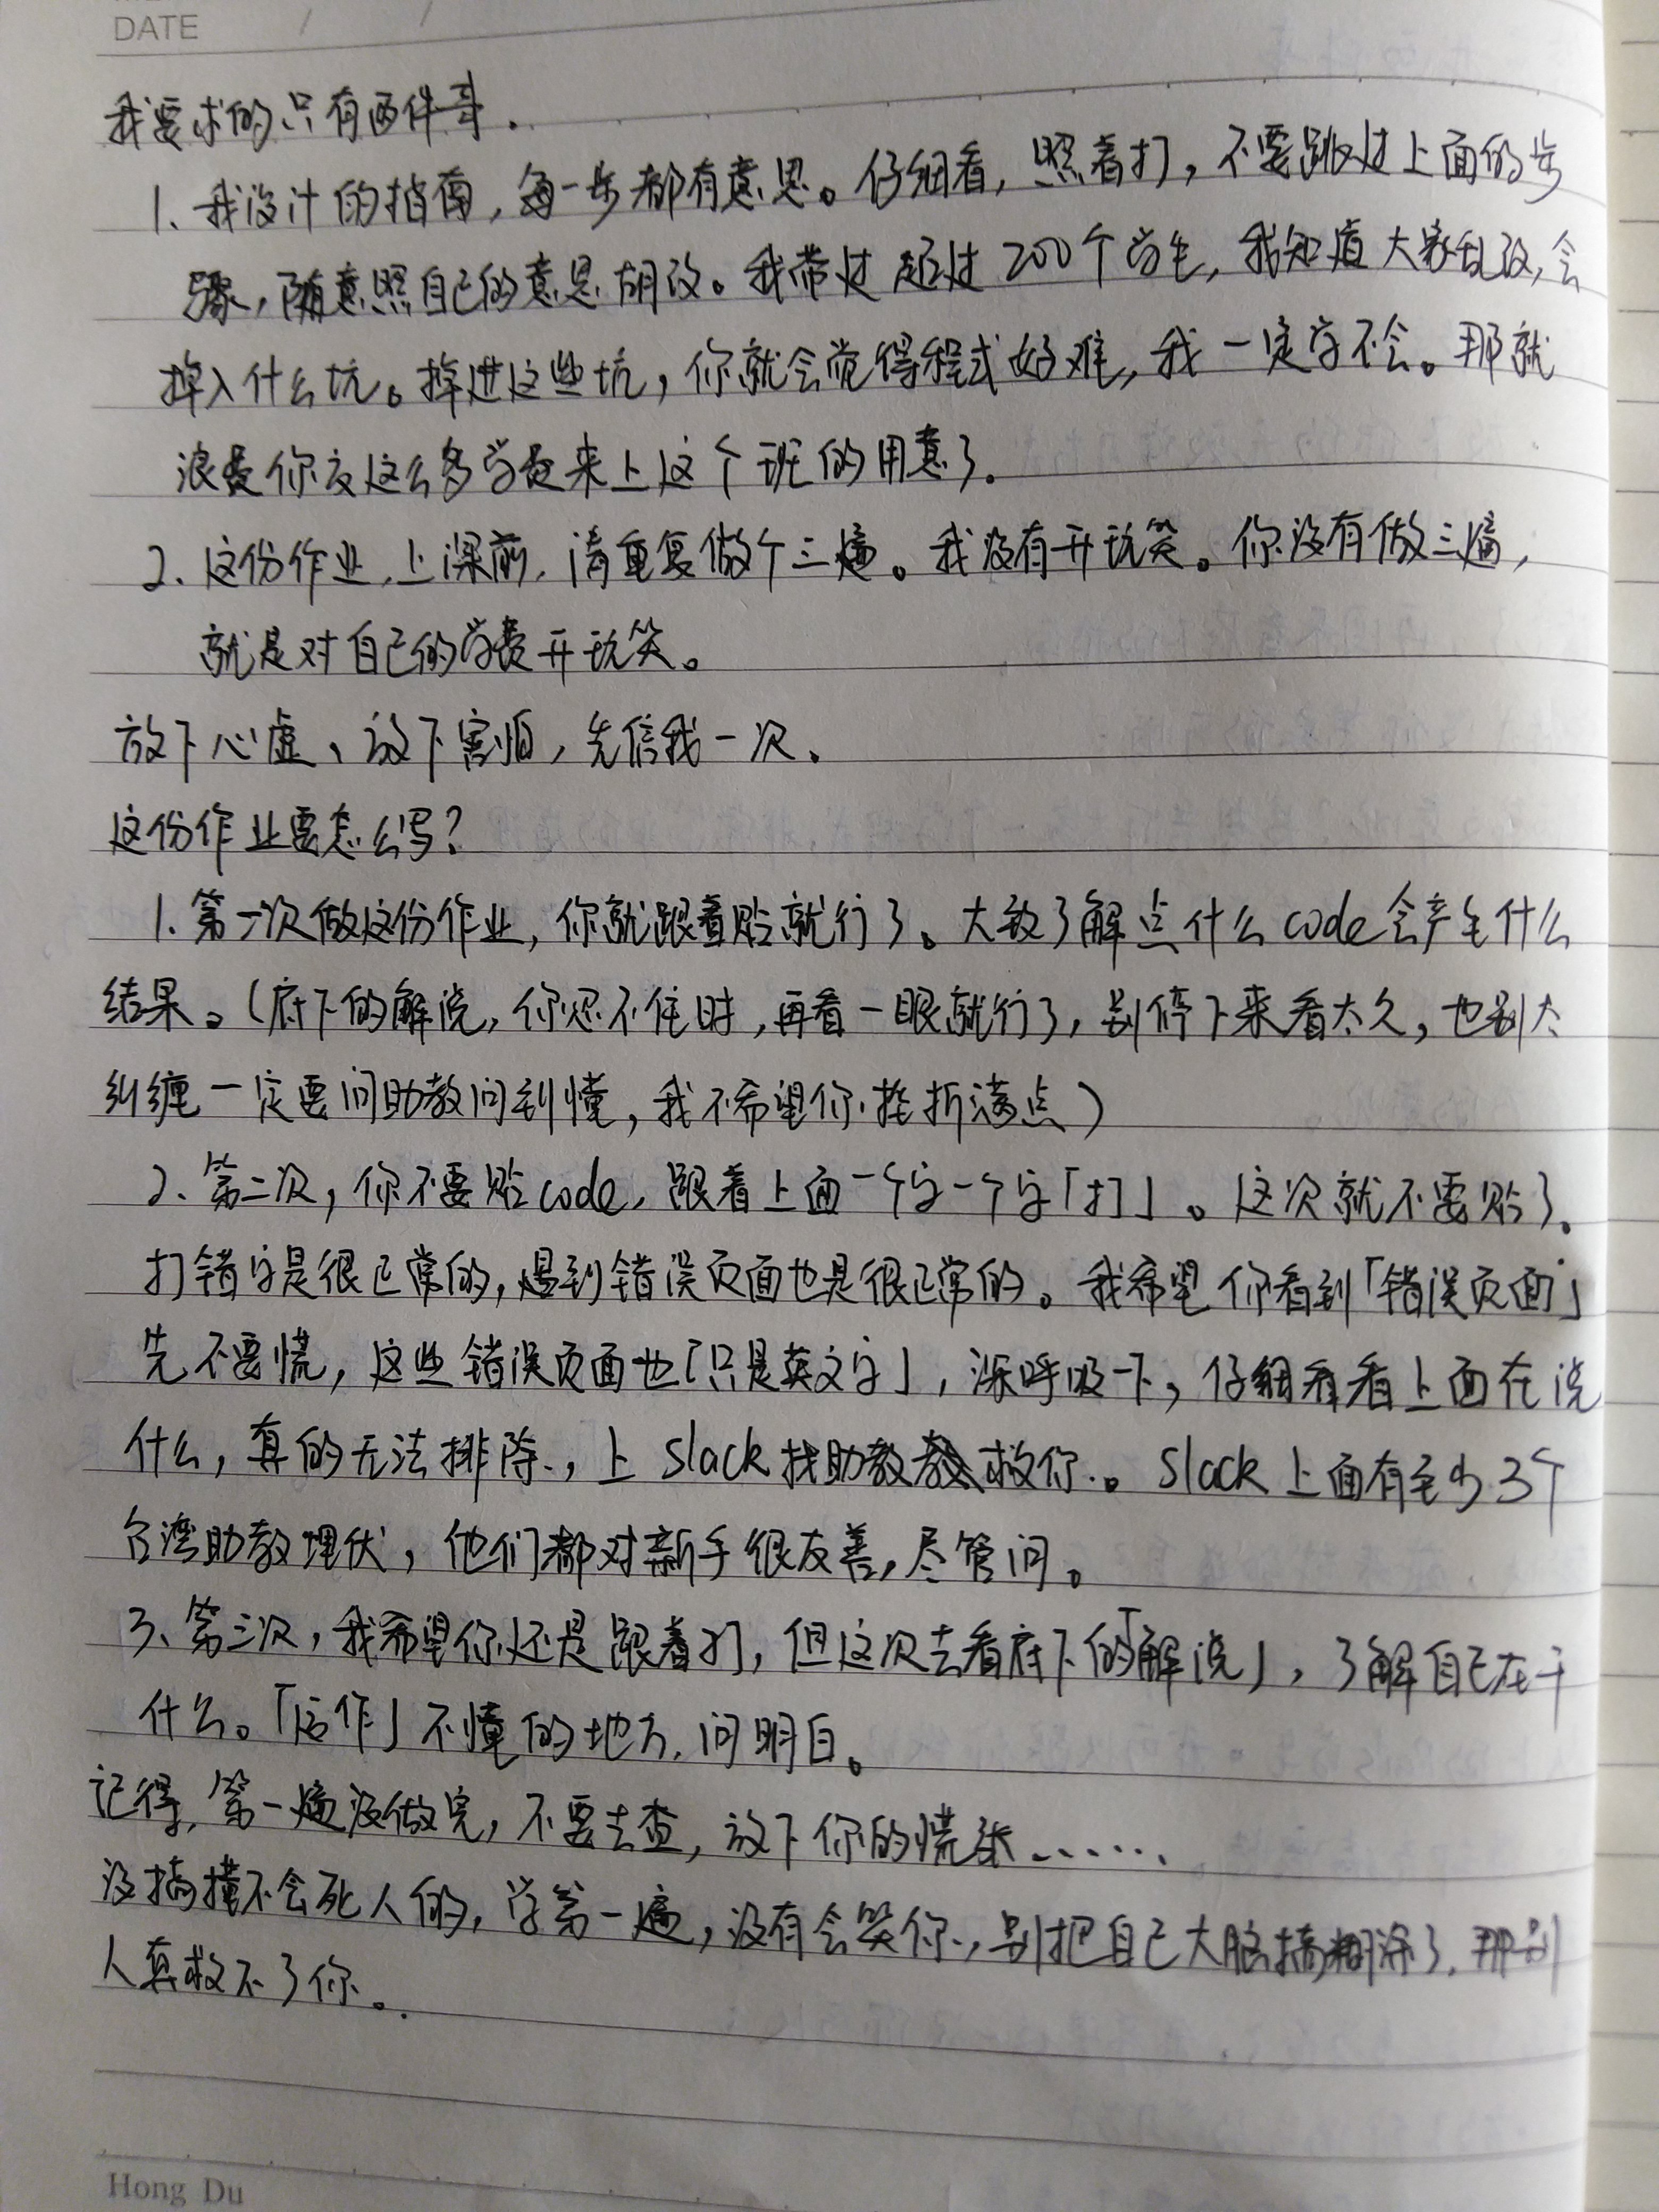 DATE / /
我要求的只有两件事.
1、我设计的指南,每一步都有意思。仔细看,照着打,不要跳过上面的步
骤,随意照自己的意思胡改。我带过超过200个学生,我知道大家乱改,会
掉入什么坑。掉进这些坑,你就会觉得程式好难,我一定学不会。那就
浪费你交这么多学费来上这个班的用意了。
2、这份作业,上课前,请重复做个三遍。我没有开玩笑。你没有做三遍,
就是对自己的学费开玩笑。
放下心虚、放下害怕,先信我一次、
这份作业要怎么写?
1、第一次做这份作业,你就跟着贴就行了。大致了解点什么code会产生什么
结果。(底下的解说,你忍不住时,再看一眼就行了,别停下来看太久,也别太
纠缠一定要问助教问到懂,我不希望你挫折满点)
2、第二次,你不要贴code,跟着上面一个字一个字「打」。这次就不要贴了。
打错字是很正常的,遇到错误页面也是很正常的。我希望你看到「错误页面」
先不要慌,这些错误页面也「只是英文字」,深呼吸一下,仔细看看上面在说
什么,真的无法排除,上Slack找助教救你。Slack上面有至少3个
台湾助教埋伏,他们都对新手很友善,尽管问。
3、第三次,我希望你还是跟着打,但这次去看底下的「解说」,了解自己在干
什么。「后作」不懂的地方,问明白。
记得,第一遍没做完,不要去查,放下你的慌张......
没搞懂不会死人的,学第一遍,没有会笑你,别把自己大脑搞糊涂了,那别
人真救不了你。
Hong Du